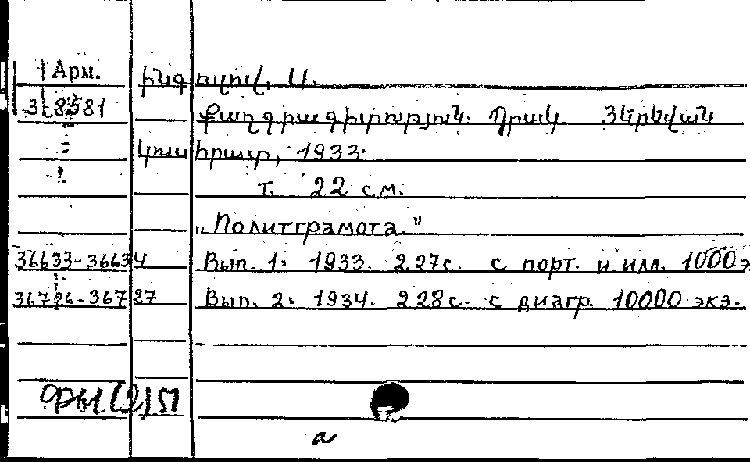 Арм. Ինգուլով, Ս.
318581 Քաղգրագիտություն. Պրակ Յերեվան
Կուսհրատ, 1933.
т. 22 см.
„Политграмота"
36633-36634 Вып. 1. 1933. 227с. с порт. и илл. 1000 э
36726-36727 Вып. 2. 1934. 228с. с диагр. 10000 экз.
а